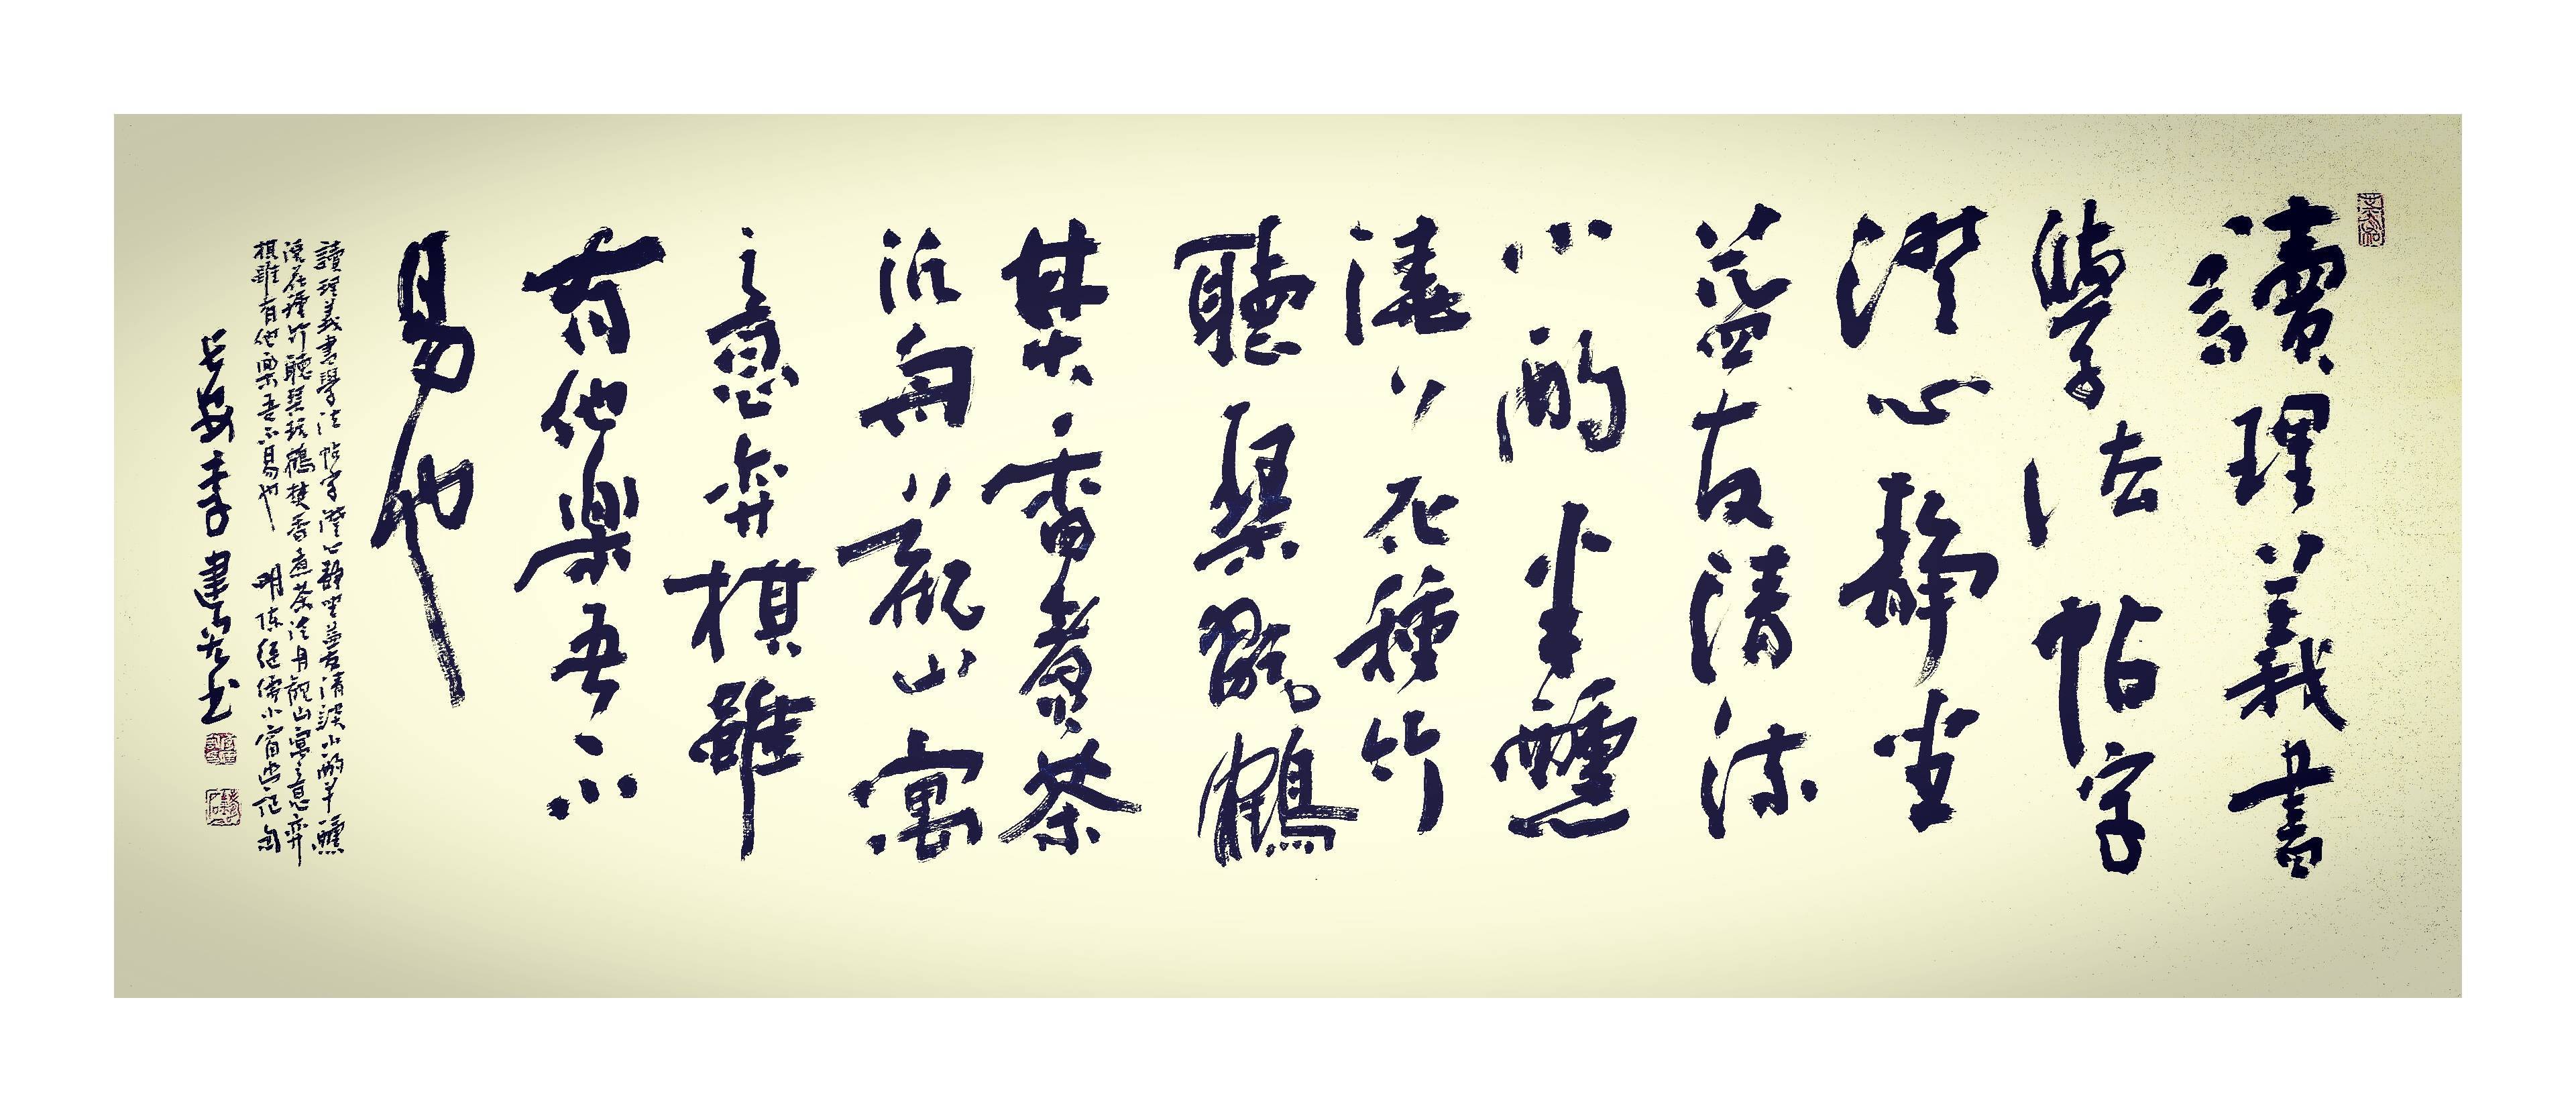 讀理義書
學法帖字
澄心靜坐
益友清談
小酌半醺
澆花種竹
聽琴翫鶴
焚香煮茶
泛舟觀山寓
意弈棋雖
有他樂吾不
易也
讀理義書學法帖字澄心靜坐益友清談小酌半醺
澆花種竹聽琴玩鶴焚香煮茶泛舟觀山寓意弈
棋雖有他樂吾不易也 明陳繼儒小窗幽記句
長安李建书